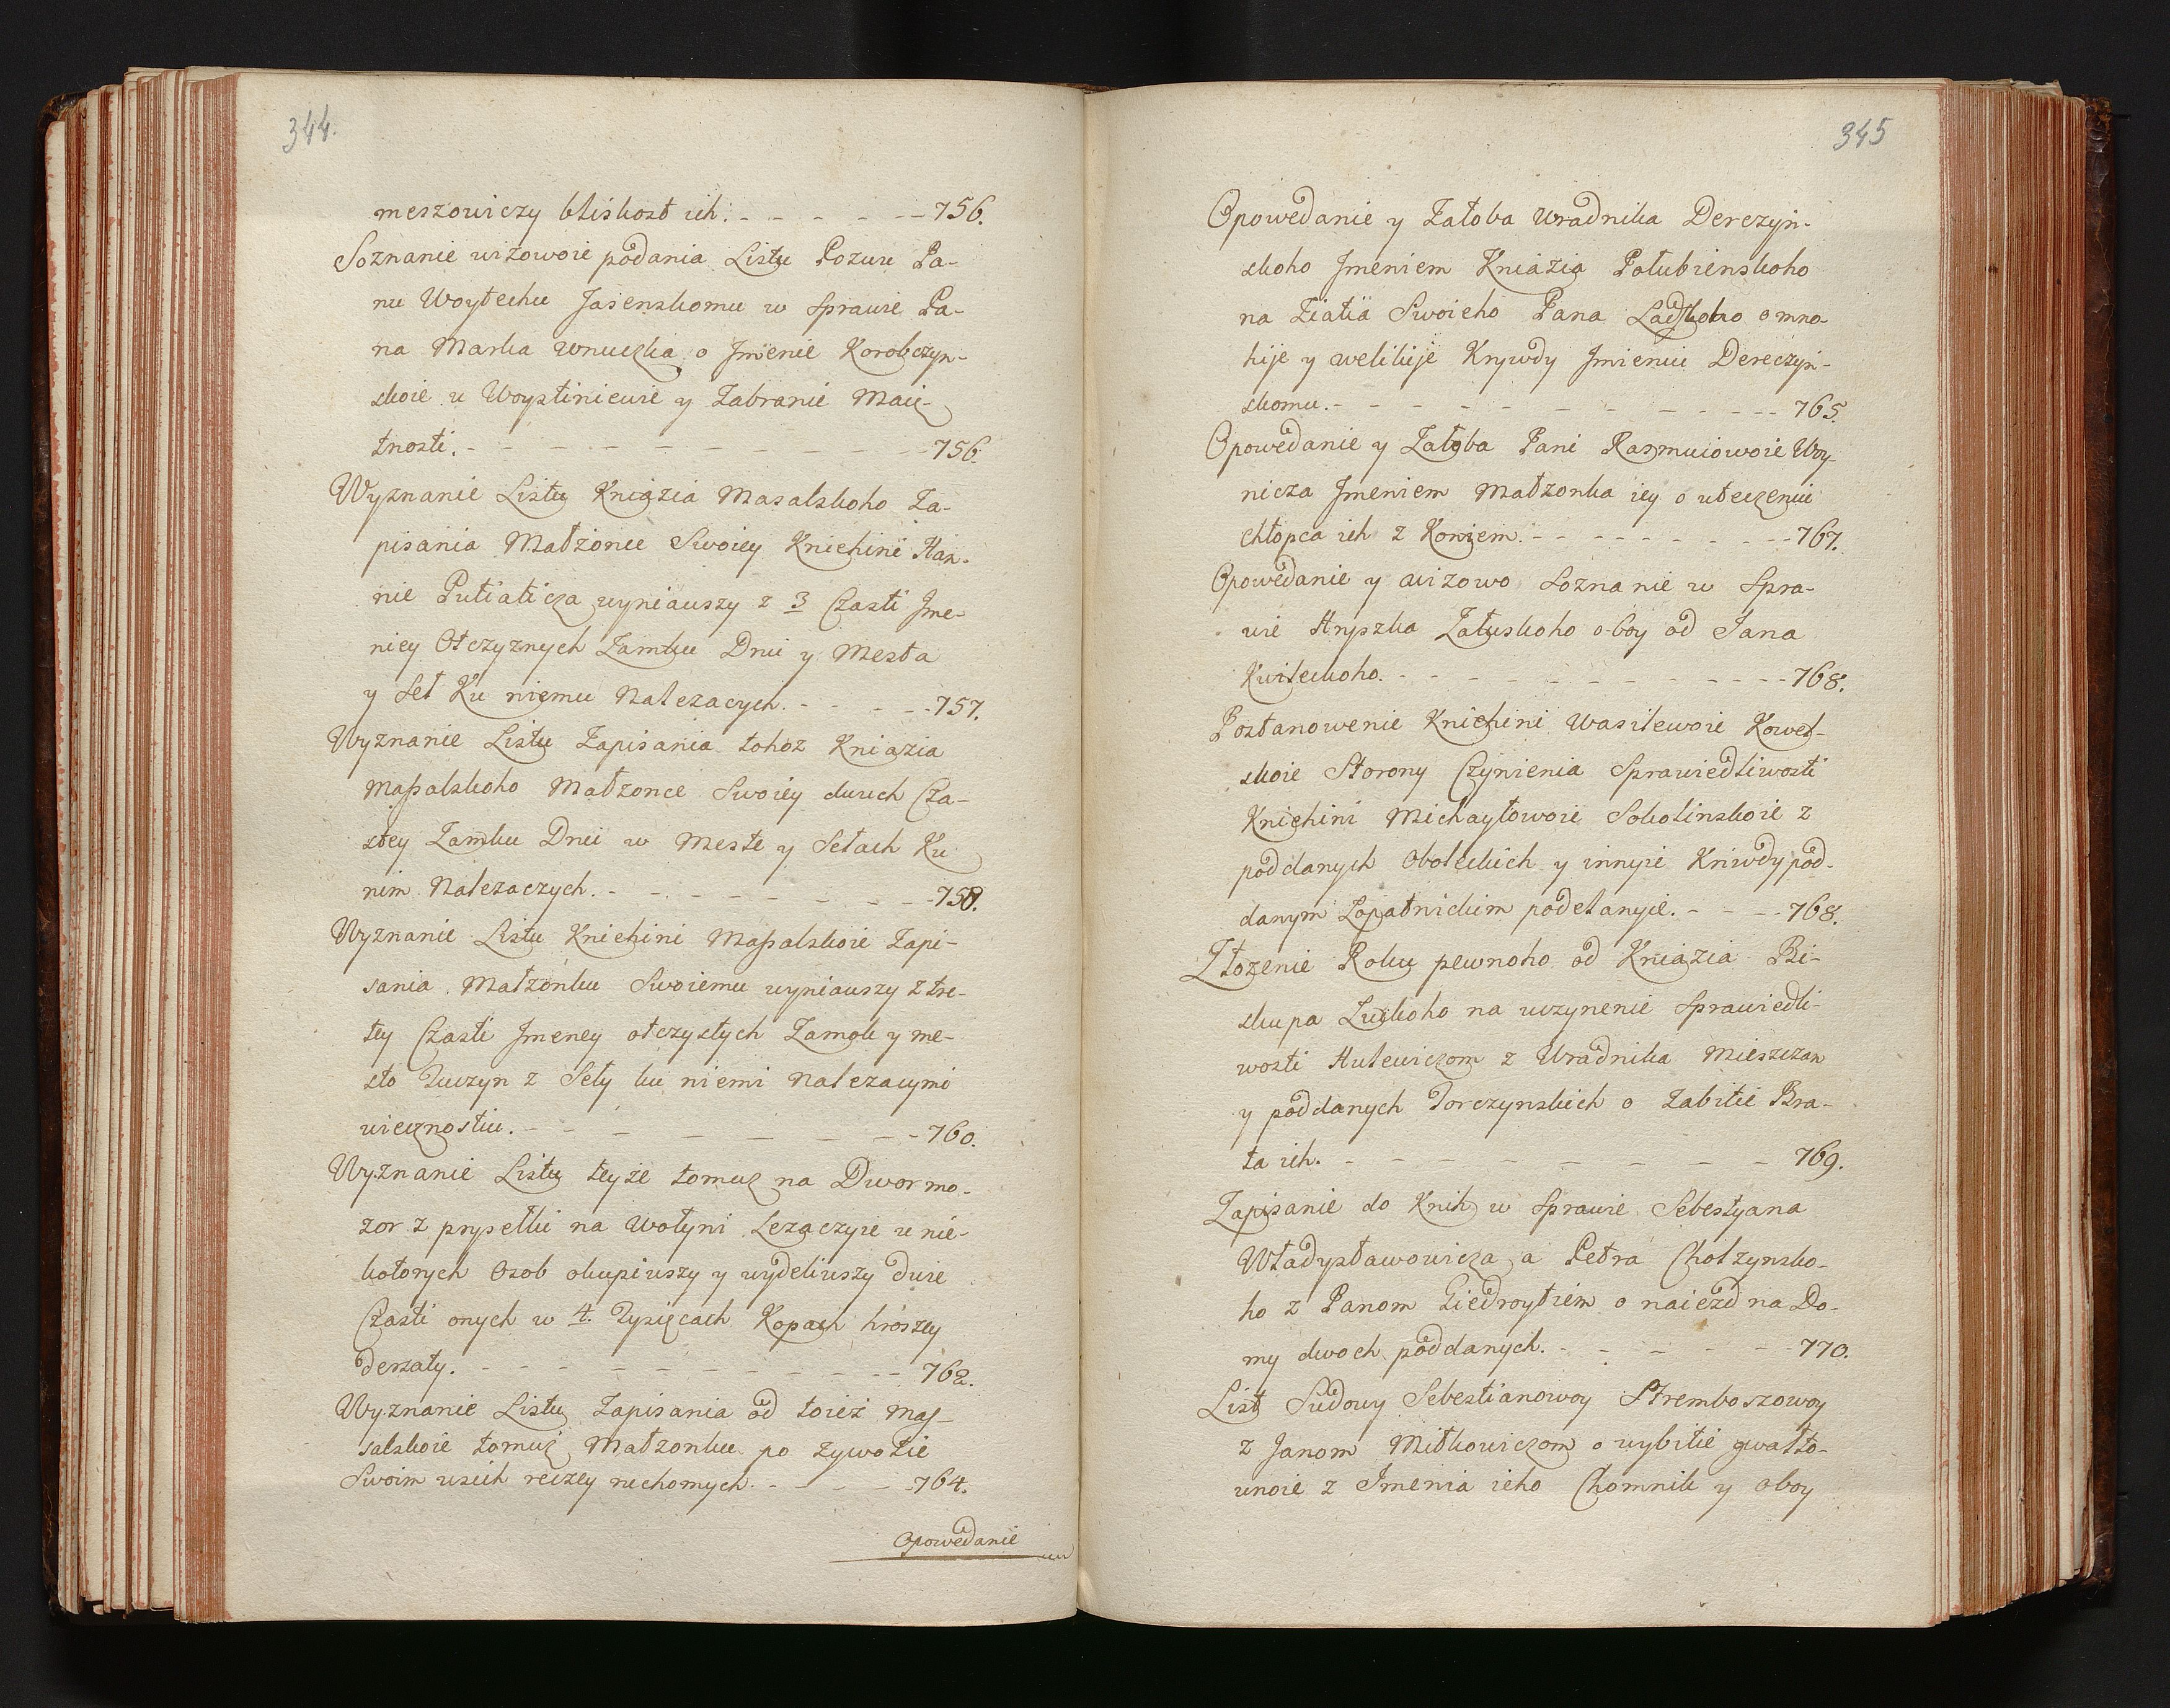 344.
meszowiczy bliskost ich. - - - - - - 756.
Soznanie wiżowoie podania Listu Pozwu Pa-
nu Woytechu Jasenskomu w Sprawie Pa-
na Marka Wnuczka o Jmenie Korobczyn-
skoie u Woystiniewie y Zabranie Maię-
tnosti. - - - - - - - - 756.
Wyznanie Listu Kniazia Masalskoho Za-
pisania Małżonce Swoiey Kniehini Han-
nie Putiaticza wyniawszy z 3 Czasti Jme-
niey Otczyznych Zamku Dnu y Mesta
y Seł Ku niemu Nalezacych. - - - - 757.
Wyznanie Listu Zapisania tohoz Kniazia
Massalskoho Małzonce Swoiey dwuch Cza-
stey Zamku Dnu w Meste y Sełach Ku
nim Nalezaczych. - - - - - - - - 758.
Wyznanie Listu Kniehini Massalskoie Zapi-
sania Małzonku Swoiemu wyniawszy z tre-
tey Czasti Jmeney otczystych Zamok y me-
sto Tuczyn z Seły ku niemi Nalezacymi
wiecznostiu. - - - - - - - 760.
Wyznanie Listu teyże tomuz na Dwor mo-
zor z prysełki na Wołyni Lezaczyie u nie-
kotorych Osob okupiwszy y wydeliwszy dwie
Czasti onych w 4. Tysięcach Kopach hroszey
derzaty. - - - - - - - - 762.
Wyznanie Listu Zapisania od toież Mas-
salskoie tomuż Małzonku po Zywotie
Swoim wsich reczey ruchomych. - - - - 764.
Opowedanie
345
Opowedanie y Załoba Wradnika Derczyn-
skoho Jmeniem Kniazia Połubienskoho
na Ziatia Swoieho Pana Ladskoho o mno-
hije y welikije Krywdy Jmieniu Dereczyn-
skomu. - - - - - - - - - - 765.
Opowedanie y Załoba Pani Razmuiowoie Woy-
nicza Jmeniem Małzonka iey o uteczeniu
chłopca ich z Koniem. - - - - - - - - 767.
Opowedanie y wizowo Soznanie w Spra-
wie Hryszka Załuskoho o boy od Jana
Kwileckoho. - - - - - - - - - - 768.
Postanowenie Kniehini Wasilewoie Kowel-
skoie Storony Czynienia Sprawiedliwosti
Kniehini Michayłowoie Sokolinskoie z
poddanych Oboleckich y innyie Kriwdy pod-
danym Łopatnickim podełanyie. - - - 768.
Złozenie Roku pewnoho od Kniazia Bi-
skupa Łuckoho na uczynenie Sprawiedli-
wosti Hulewiczom z Uradnika Mieszczan
y poddanych Torczynskich o Zabitie Bra-
ta ich. - - - - - - - - 769.
Zapisanie do Knih w Sprawie Sebestyana
Władysławowicza a Petra Chołzynsko-
ho z Panom Giedroytiem o naiezd na Do-
my dwoch poddanych. - - - - - - 770.
List Sudowy Sebestianowoy Stremboszowoy
z Janom Mitkowiczom o wybitie gwałto-
wnoie z Jmenia ieho Chomnik y oboy